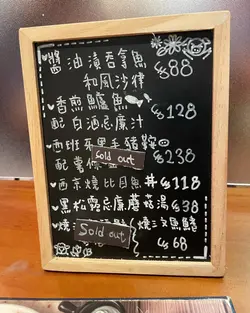 醬油漬吞拿魚
和風沙律 $88
香煎鱸魚
配白酒忌廉汁 $128
西班牙黑毛豬鞍
配薯 Sold out $238
西京燒比目魚丼 $118
黑松露忌廉蘑菇湯 $38
燒 Sold out 燒三文魚鰭
$68